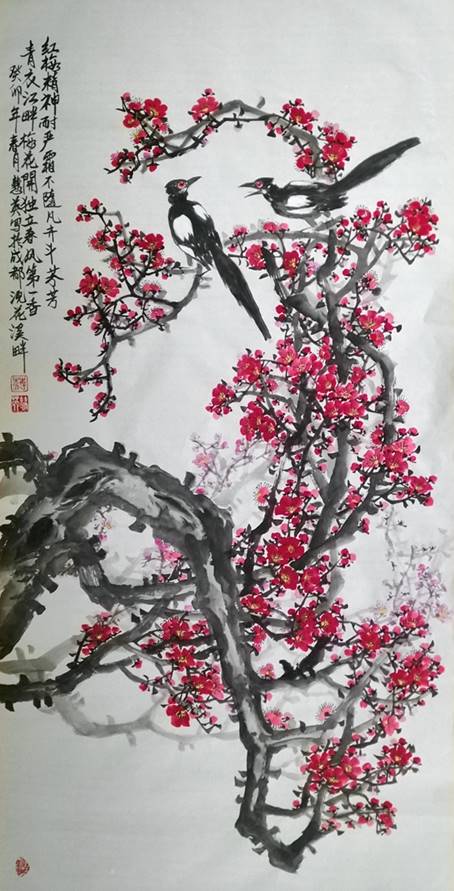 红梅精神耐严霜不随凡卉斗芬芳
青衣江畔梅花開独立春风第一香
癸卯年春月慧英写于成都浣花溪畔